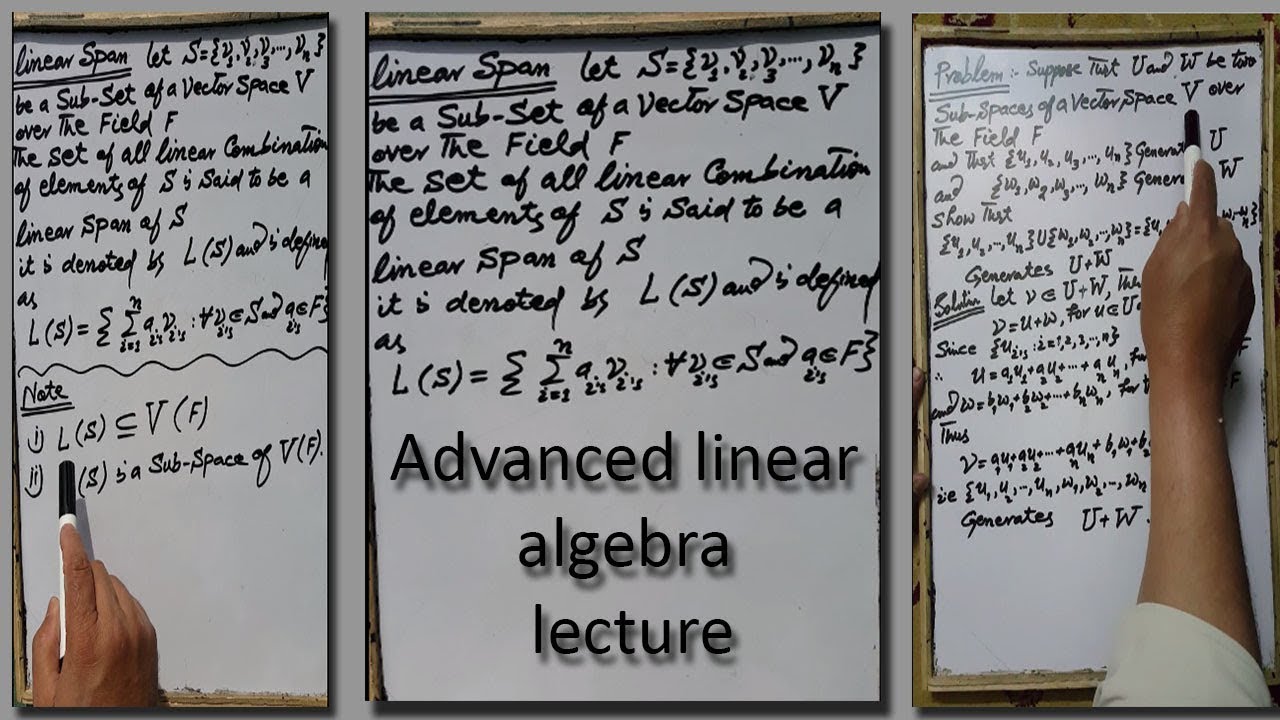 linear Span let S={v₁,v₂,v₃,...,vₙ}
be a Sub-Set of a Vector Space V
over The Field F
The Set of all linear Combination
of elements of S is Said to be a
linear Span of S
it is denoted by L(S) and is defined
as
L(S) = { ∑ⁿᵢ₌₁ aᵢ'ₛ vᵢ'ₛ : ∀ vᵢ'ₛ ∈ S and aᵢ'ₛ ∈ F}
Note
i) L(S) ⊆ V(F)
ii) (S) is a Sub-Space of V(F).
linear Span let S={v₁,v₂,v₃,...,vₙ}
be a Sub-Set of a Vector Space V
over The Field F
The Set of all linear Combination
of elements of S is Said to be a
linear Span of S
it is denoted by L(S) and is defined
as
L(S) = { ∑ⁿᵢ₌₁ aᵢ'ₛ vᵢ'ₛ : ∀ vᵢ'ₛ ∈ S and aᵢ'ₛ ∈ F}
Advanced linear
algebra
lecture
Problem:- Suppose That U and W be two
Sub-Spaces of a Vector Space V over
The Field F
and That {u₁,u₂,u₃,...,uₙ} Generat U
and {w₁,w₂,w₃,...,wₙ} Gener W
Show That
{u₁,u₂,...,uₙ}U{w₁,w₂,...,wₙ}={u₁, wₙ}
Generates U+W
Solution Let v ∈ U+W, Then
v=u+w, for u∈U
Since {uᵢ'ₛ :i=1,2,3,...,n}
∴ u=a₁u₁+a₂u₂+...+aₙuₙ, for F
and w=b₁w₁+b₂w₂+...+bₙwₙ, for F
Thus
v=a₁u₁+a₂u₂+...+aₙuₙ+b₁w₁+b₂
i.e {u₁,u₂,...,uₙ,w₁,w₂,...,wₙ
Generates U+W.